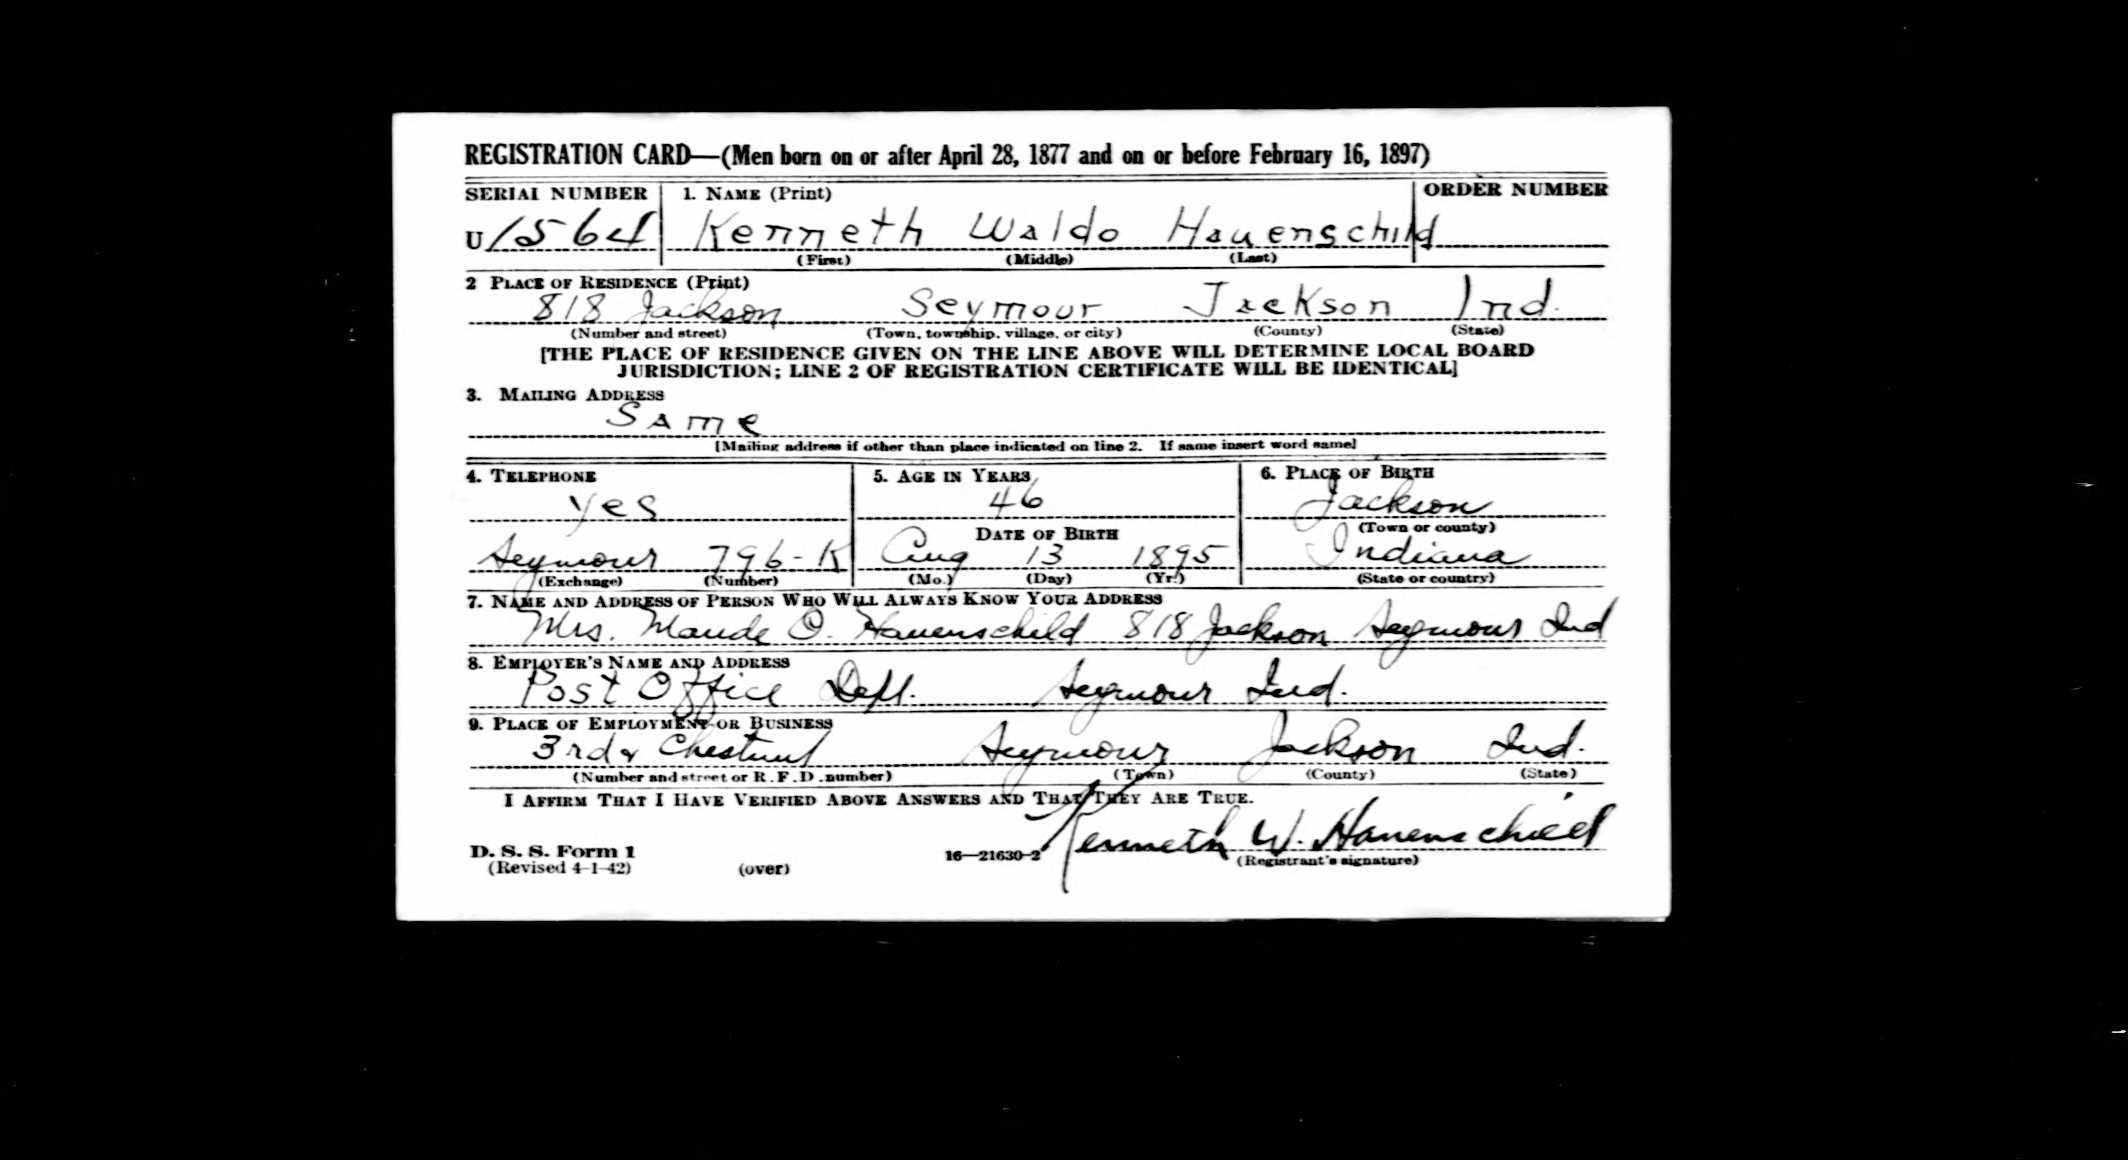 REGISTRATION CARD—(Men born on or after April 28, 1877 and on or before February 16, 1897)
SERIAL NUMBER 1. NAME (Print) ORDER NUMBER
U 1564 Kenneth Waldo Hauenschild
(First) (Middle) (Last)
2 PLACE OF RESIDENCE (Print)
818 Jackson Seymour Jackson Ind.
(Number and street) (Town, township, village, or city) (County) (State)
[THE PLACE OF RESIDENCE GIVEN ON THE LINE ABOVE WILL DETERMINE LOCAL BOARD
JURISDICTION; LINE 2 OF REGISTRATION CERTIFICATE WILL BE IDENTICAL]
3. MAILING ADDRESS
Same
[Mailing address if other than place indicated on line 2. If same insert word same]
4. TELEPHONE 5. AGE IN YEARS 6. PLACE OF BIRTH
Yes 46 Jackson
DATE OF BIRTH (Town or county)
Seymour 796-K Aug 13 1895 Indiana
(Exchange) (Number) (Mo.) (Day) (Yr.) (State or country)
7. NAME AND ADDRESS OF PERSON WHO WILL ALWAYS KNOW YOUR ADDRESS
Mrs. Maude O. Hauenschild 818 Jackson Seymour Ind
8. EMPLOYER'S NAME AND ADDRESS
Post Office Dept. Seymour Ind.
9. PLACE OF EMPLOYMENT OR BUSINESS
3rd & Chestnut Seymour Jackson Ind.
(Number and street or R. F. D. number) (Town) (County) (State)
I AFFIRM THAT I HAVE VERIFIED ABOVE ANSWERS AND THAT THEY ARE TRUE.
Kenneth W. Hauenschild
D. S. S. Form 1 16—21630-2 (Registrant's signature)
(Revised 4-1-42) (over)